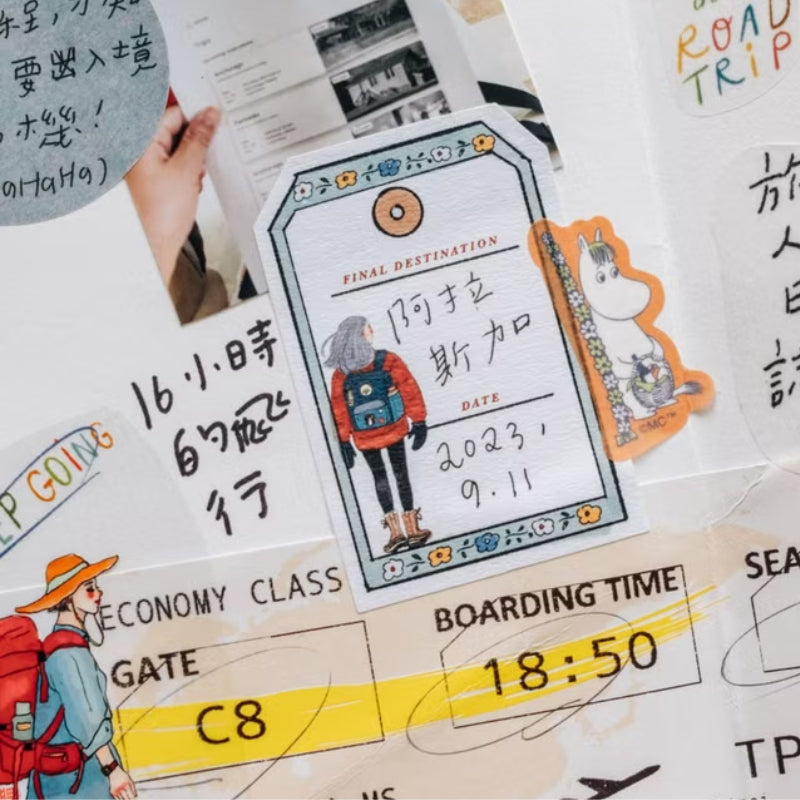 要出入境
機!
aHaHa)
ROAD
TRIP
FINAL DESTINATION
阿拉
斯加
DATE
2023,
9.11
©MC™
16小時
的飛
行
旅
人
日
誌
GOING
ECONOMY CLASS
GATE
C8
BOARDING TIME
18:50
SEA
TP